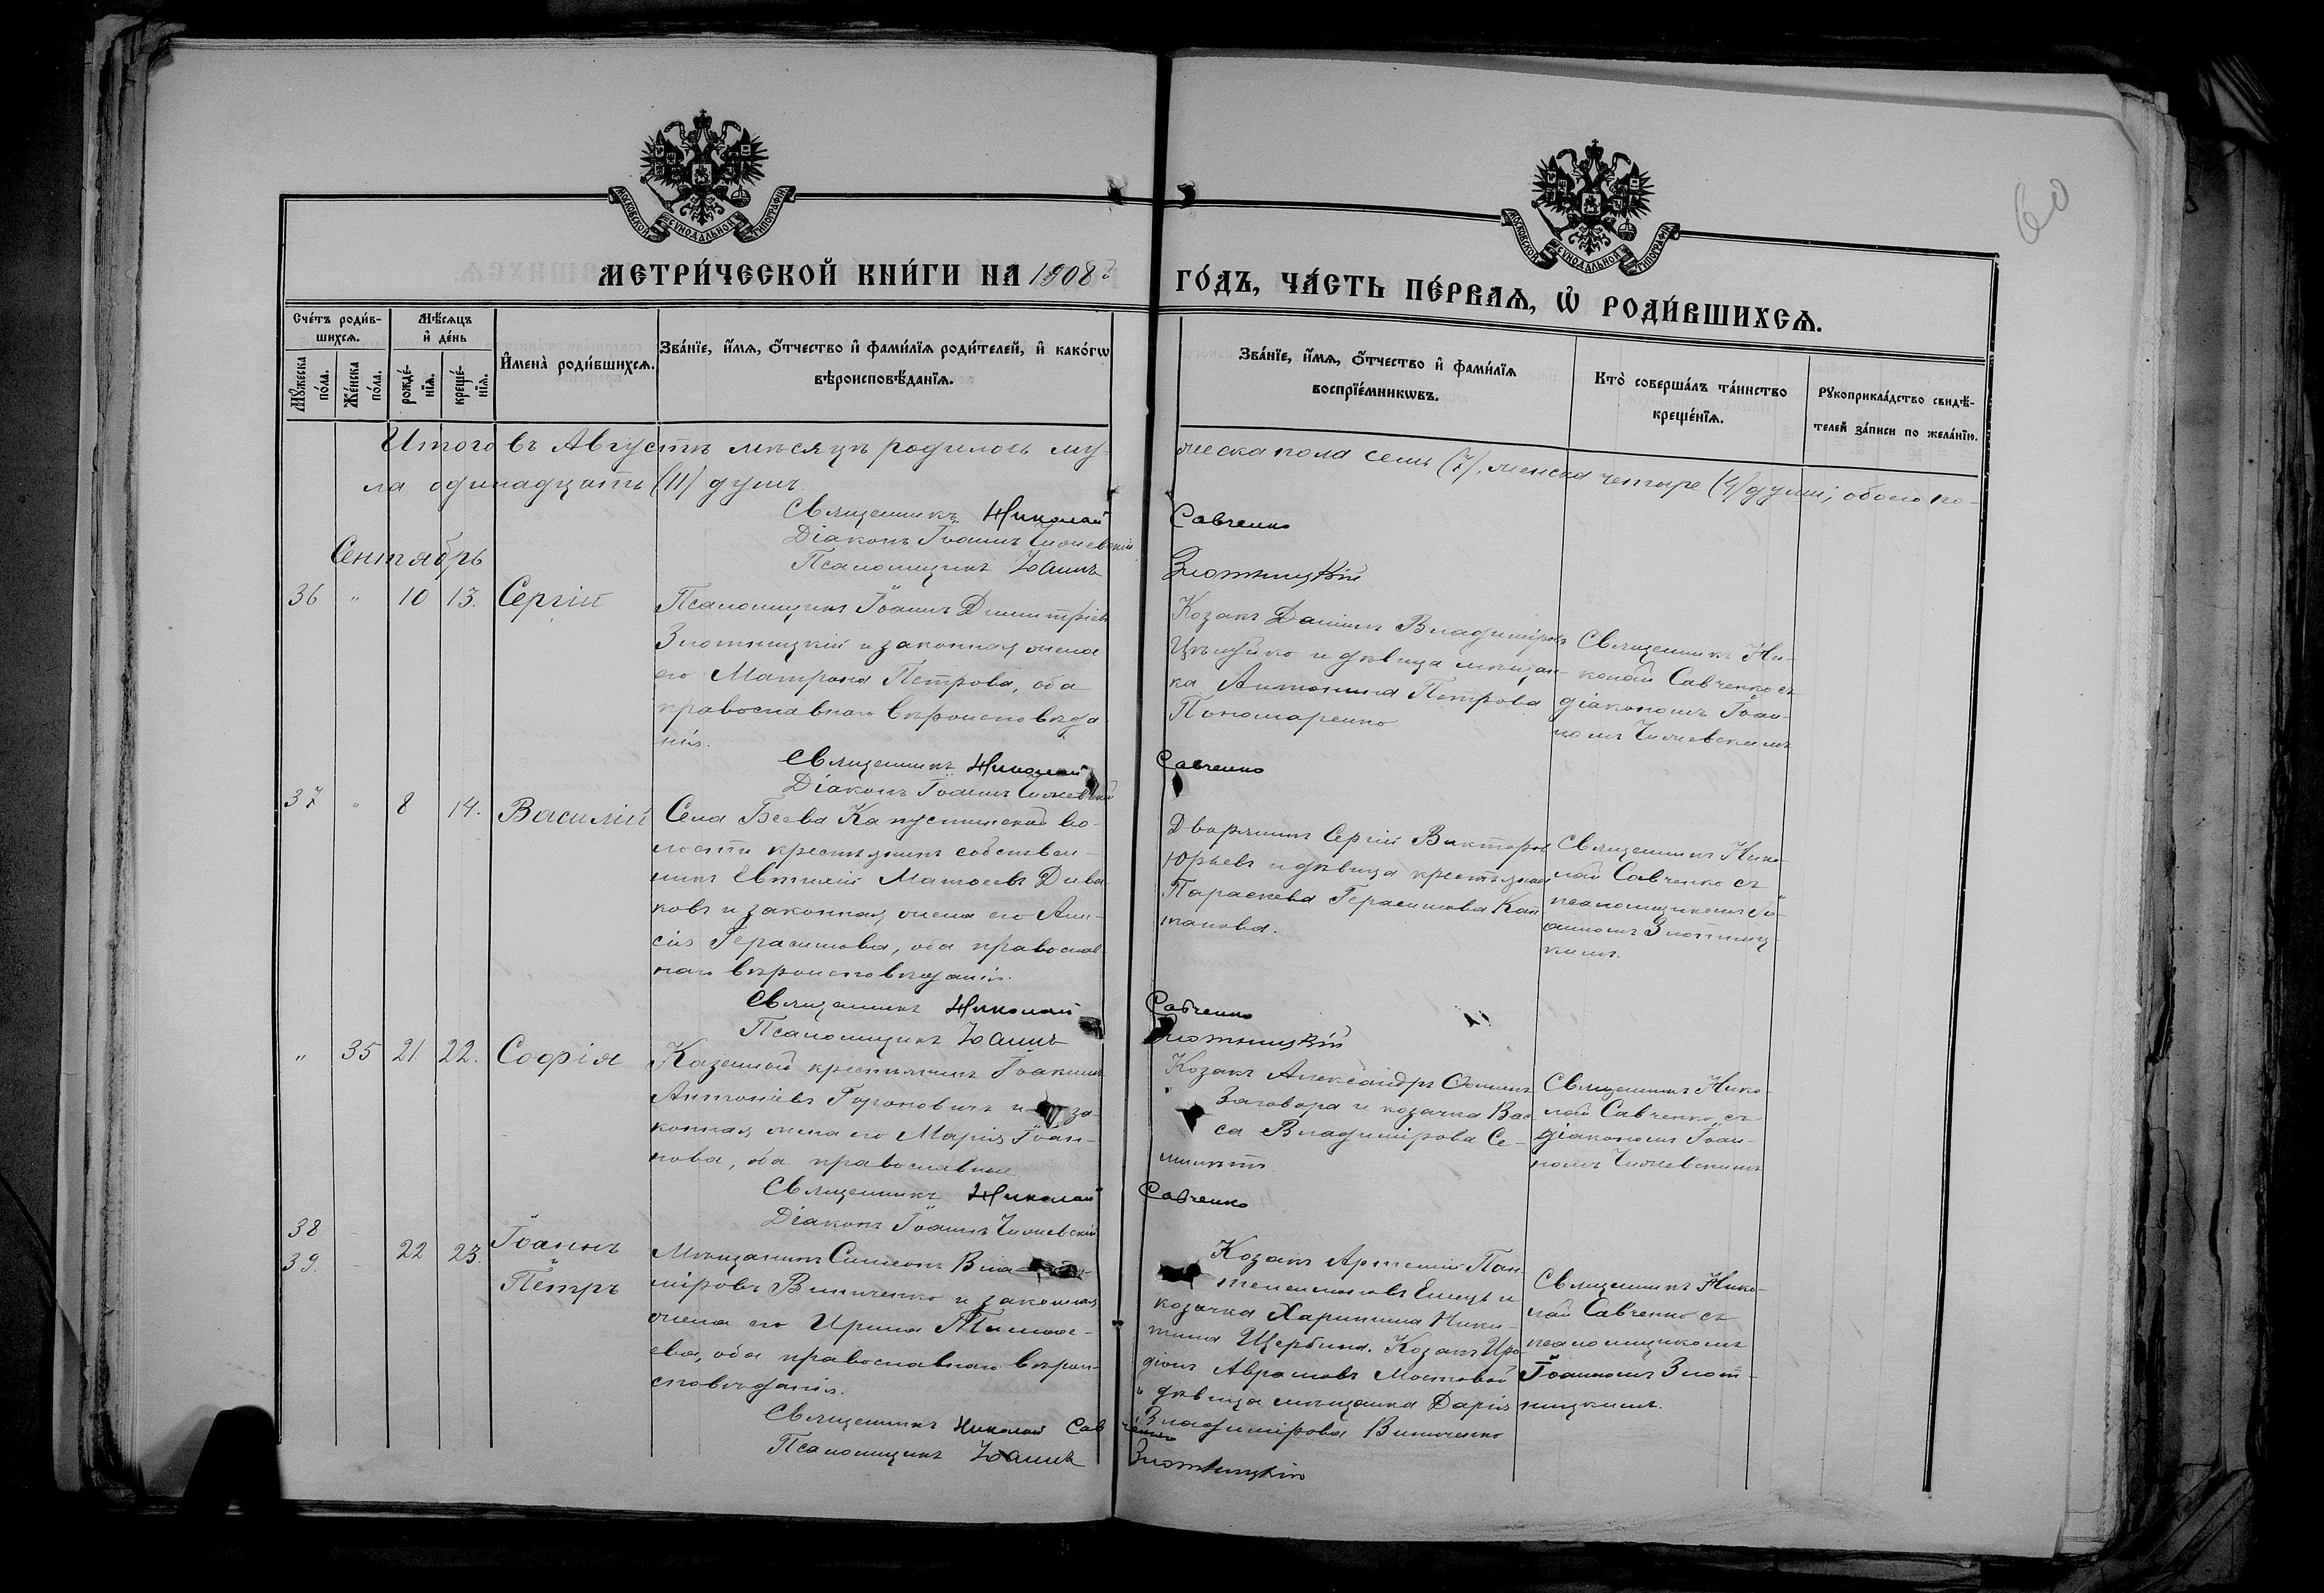 60
МОСКОВСКОЙ СѴНОДАЛЬНОЙ ТИПОГРАФІИ
МОСКОВСКОЙ СѴНОДАЛЬНОЙ ТИПОГРАФІИ
МЕТРИ́ЧЕСКОЙ КНИ́ГИ НА 1908 г
ГО́ДЪ, ЧА́СТЬ ПЕ́РВАѦ, Ѡ҆ РОДИ́ВШИХСѦ.
Сче́тъ роди́в-
шихсѧ.
Мꙋ́жеска по́ла.
Же́нска по́ла.
Мѣ́сѧцъ
и҆ де́нь
рожде́-нїѧ.
креще́-нїѧ.
И҆мена̀ роди́вшихсѧ.
Зва́нїе, и҆́мѧ, ѻ҆́тчество и҆ фами́лїѧ роди́телей, и҆ како́гѡ
вѣроисповѣ́данїѧ.
Зва́нїе, и҆́мѧ, ѻ҆́тчество и҆ фами́лїѧ
воспрїе́мникѡвъ.
Кто̀ соверша́лъ та́инство
креще́нїѧ.
Рꙋкоприкла́дство свидѣ́-
телей за́писи по жела́нїю.
Итого въ Августѣ мѣсяцѣ родилось му-
жеска пола семь (7), женска четыре (4) души; обоего по-
ла одинадцать (11) душъ.
Священникъ Николай Савченко
Діаконъ Іоаннъ
Псаломщикъ Іоаннъ Злотницкій
Сентябрь
36 " 10 13. Сергій
Псаломщикъ Іоаннъ Димитріевъ
Злотницкій и законная жена
его Матрона Петрова, оба
православнаго вѣроисповѣда
нія.
Козакъ Даніилъ Владиміровъ
и дѣвица мѣщан-
ка Антонина Петрова
Пономаренко
Священникъ Ни-
колай Савченко съ
діакономъ Іоан-
номъ
Священникъ Николай Савченко
Діаконъ Іоаннъ
37 " 8 14. Василій
Села Беева Капустинской во-
лости крестьянинъ собствен-
никъ Евтихій Матѳеевъ Дива
ковъ и законная жена его Ани-
сія Герасимова, оба православ-
наго вѣроисповѣданія.
Дворянинъ Сергій Викторовъ
Юрьевъ и дѣвица крестьянка
Параскева Герасимова Кап
танова.
Священникъ Нико-
лай Савченко съ
псаломщикомъ Іо-
анномъ Злотниц-
кимъ.
Священникъ Николай Савченко
Псаломщикъ Іоаннъ Злотницкій
" 35 21. 22. Софія
Казенный крестьянинъ Іоакимъ
Антоніевъ и за-
конная жена его Марія Іоан-
нова, оба православные
Козакъ Александръ
Заговора и козачка Вас
са Владимірова Се-
Священникъ Нико-
лай Савченко съ
діакономъ Іоан-
номъ
Священникъ Николай Савченко
Діаконъ Іоаннъ
38 Іоаннъ
39. 22 23. Петръ
Мѣщанинъ Симеонъ Влади-
міровъ Винниченко и законная
жена его Ирина Тимоѳе-
ева, оба православнаго вѣрои-
сповѣданія.
Козакъ Артемій Пан-
телеимоновъ Емецъ и
козачка Харитина Ники-
тина Щербина. Козакъ Иро-
діонъ Аврамовъ Мостовой
и дѣвица мѣщанка Дарія
Владимірова Винниченко
Священникъ Нико-
лай Савченко съ
псаломщикомъ
Іоанномъ Злот-
ницкимъ.
Священникъ Николай Савченко
Псаломщикъ Іоаннъ Злотницкій